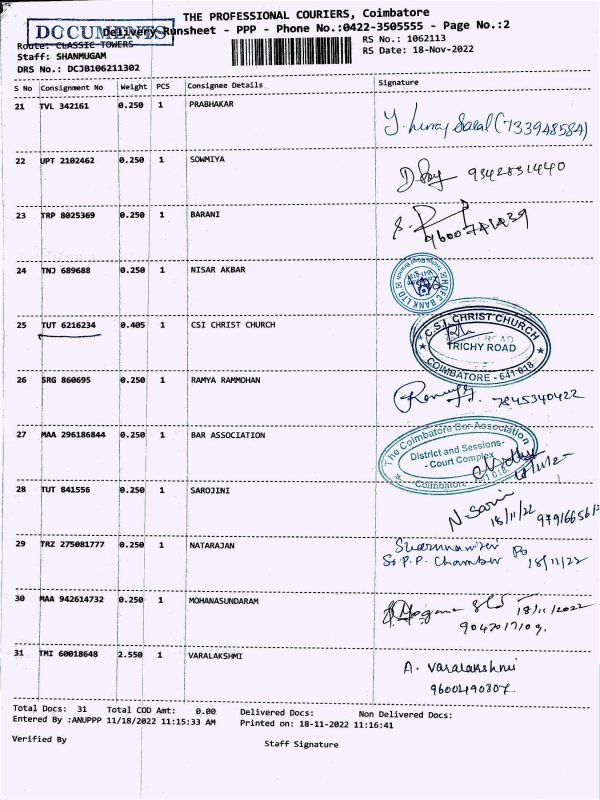 THE PROFESSIONAL COURIERS, Coimbatore
DOCUMENTS
Delivery Runsheet - PPP - Phone No.:0422-3505555 - Page No.:2
Route: CLASSIC TOWERS
RS No.: 1062113
Staff: SHANMUGAM
RS Date: 18-Nov-2022
DRS No.: DCJB106211302
S No Consignment No Weight PCS Consignee Details Signature
21 TVL 342161 0.250 1 PRABHAKAR
22 UPT 2102462 0.250 1 SOWMIYA
9342831440
23 TRP 8025369 0.250 1 BARANI
24 TNJ 689688 0.250 1 NISAR AKBAR
HDFC BANK LTD
25 TUT 6216234 0.405 1 CSI CHRIST CHURCH
C.S.I. CHRIST CHURCH
TRICHY ROAD
COIMBATORE - 641 018.
26 SRG 860695 0.250 1 RAMYA RAMMOHAN
7845340422
27 MAA 296186844 0.250 1 BAR ASSOCIATION
The Coimbatore Bar Association
District and Sessions-
- Court Complex
Coimbatore 641 018
28 TUT 841556 0.250 1 SAROJINI
18/11/22
29 TRZ 275081777 0.250 1 NATARAJAN
P.P. Chamber
18/11/22
30 MAA 942614732 0.250 1 MOHANASUNDARAM
18/11/2022
31 TMI 60018648 2.550 1 VARALAKSHMI
A. Varalakshmi
Total Docs: 31 Total COD Amt: 0.00 Delivered Docs: Non Delivered Docs:
Entered By :ANUPPP 11/18/2022 11:15:33 AM Printed on: 18-11-2022 11:16:41
Verified By
Staff Signature